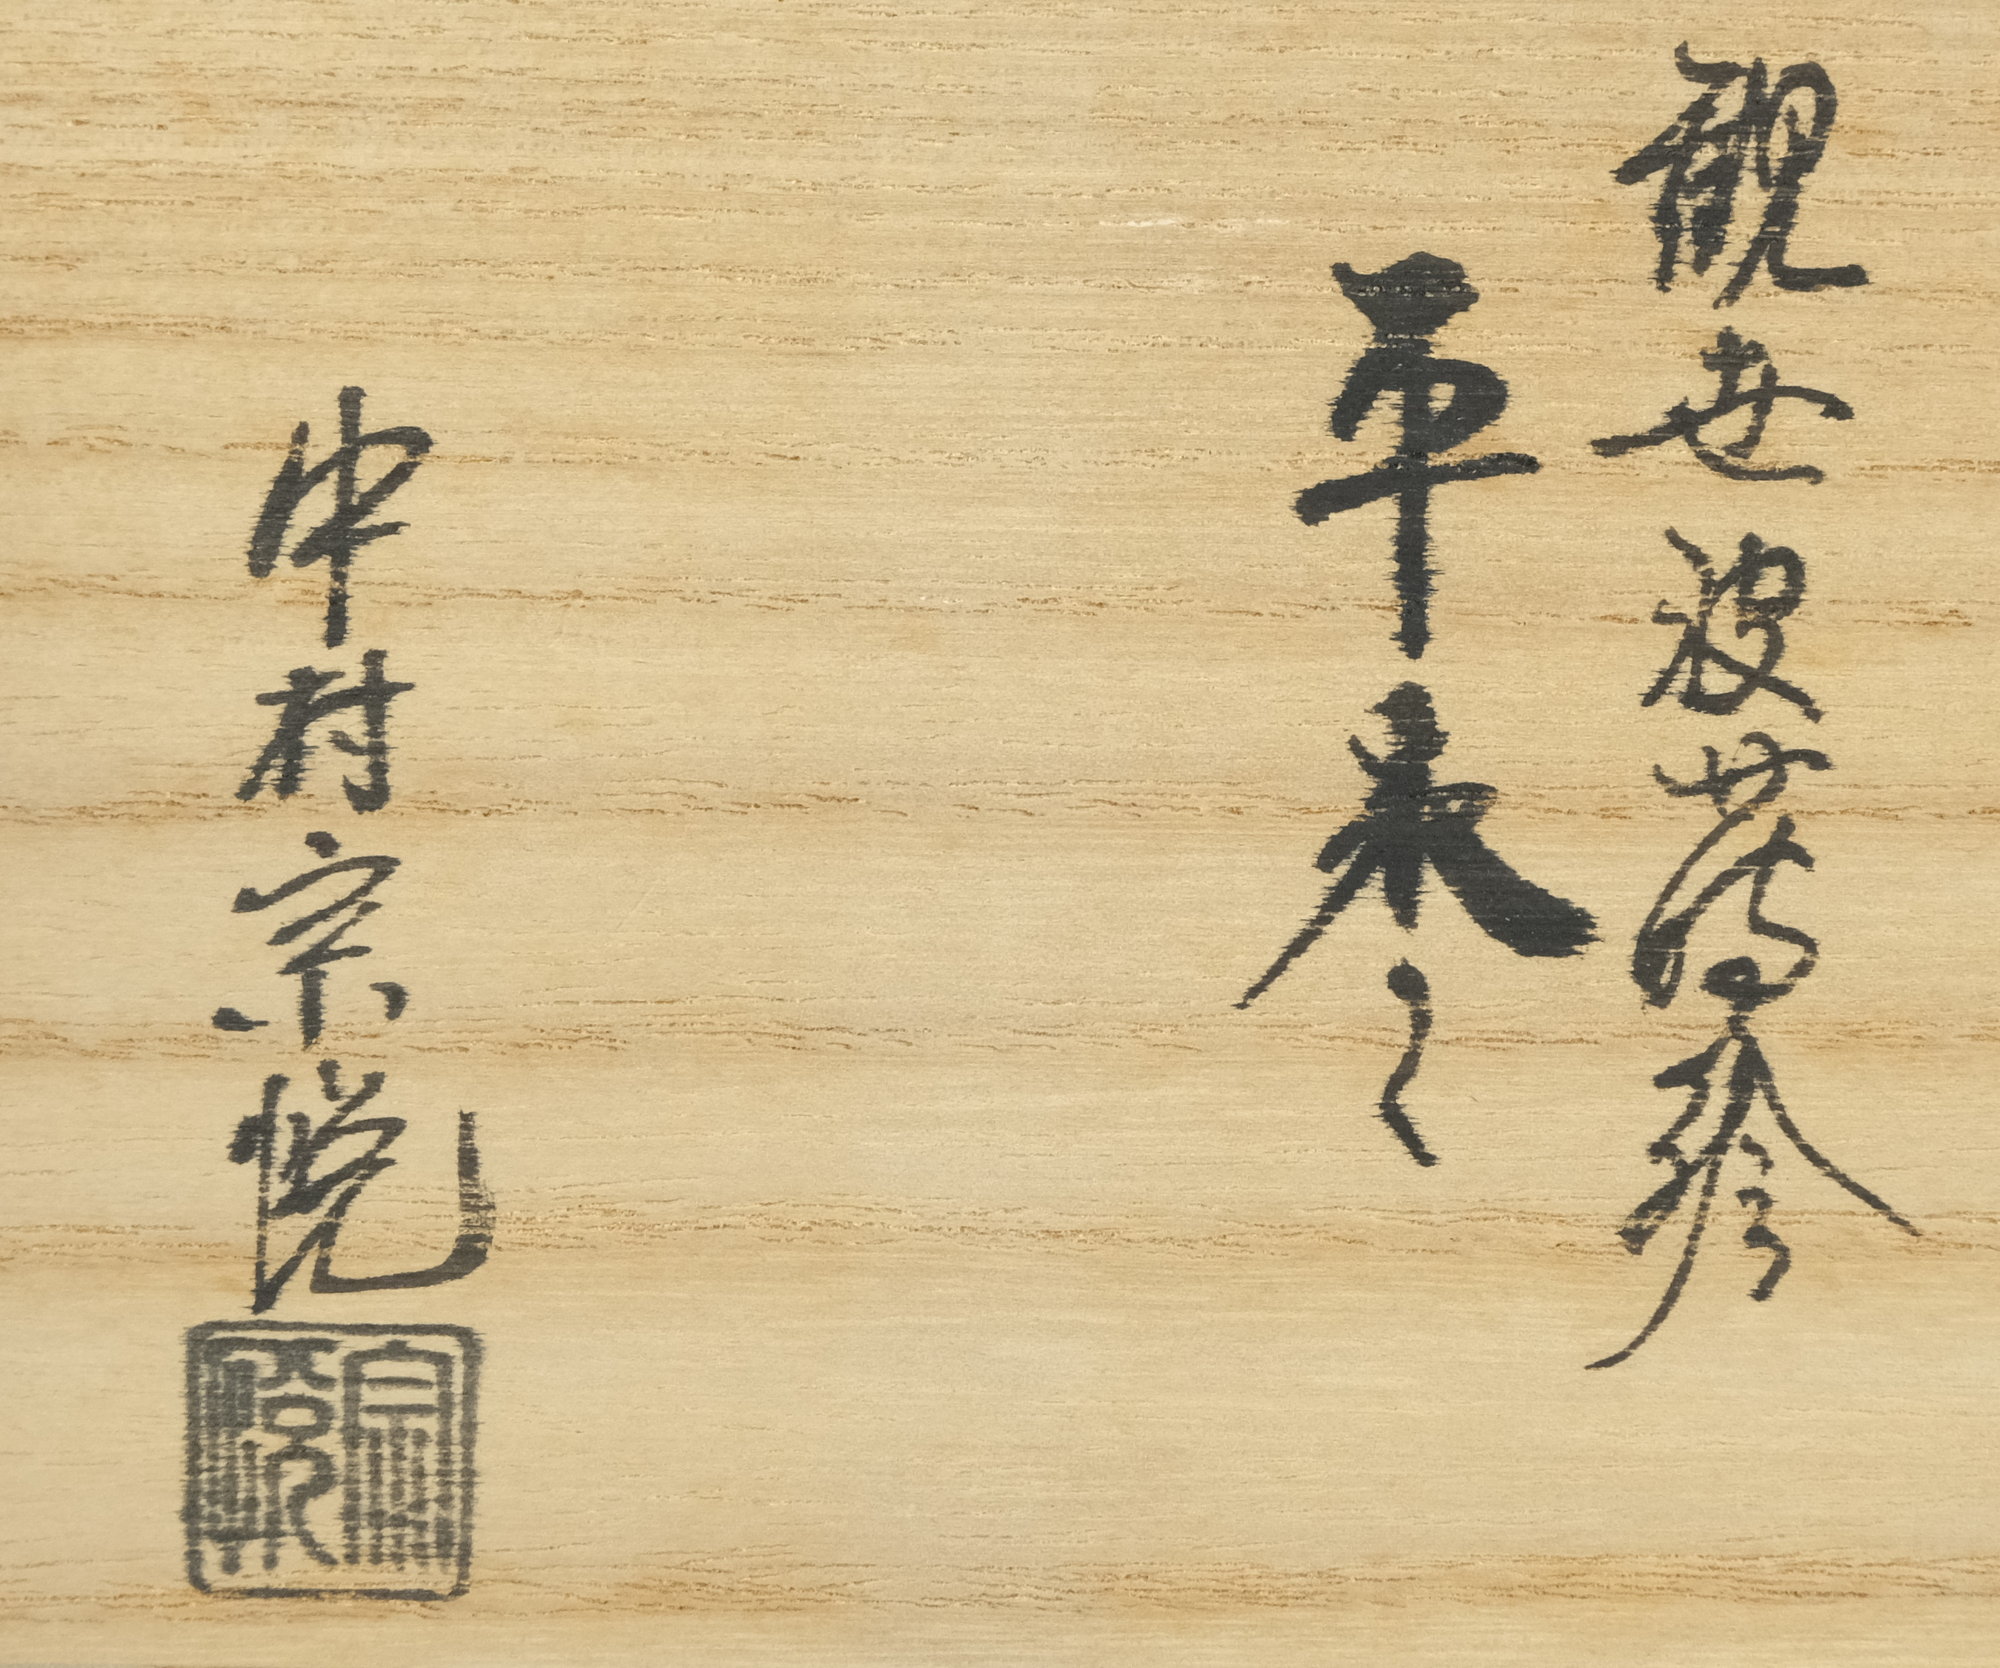 観世波蒔絵
平棗
中村宗悦
宗悦